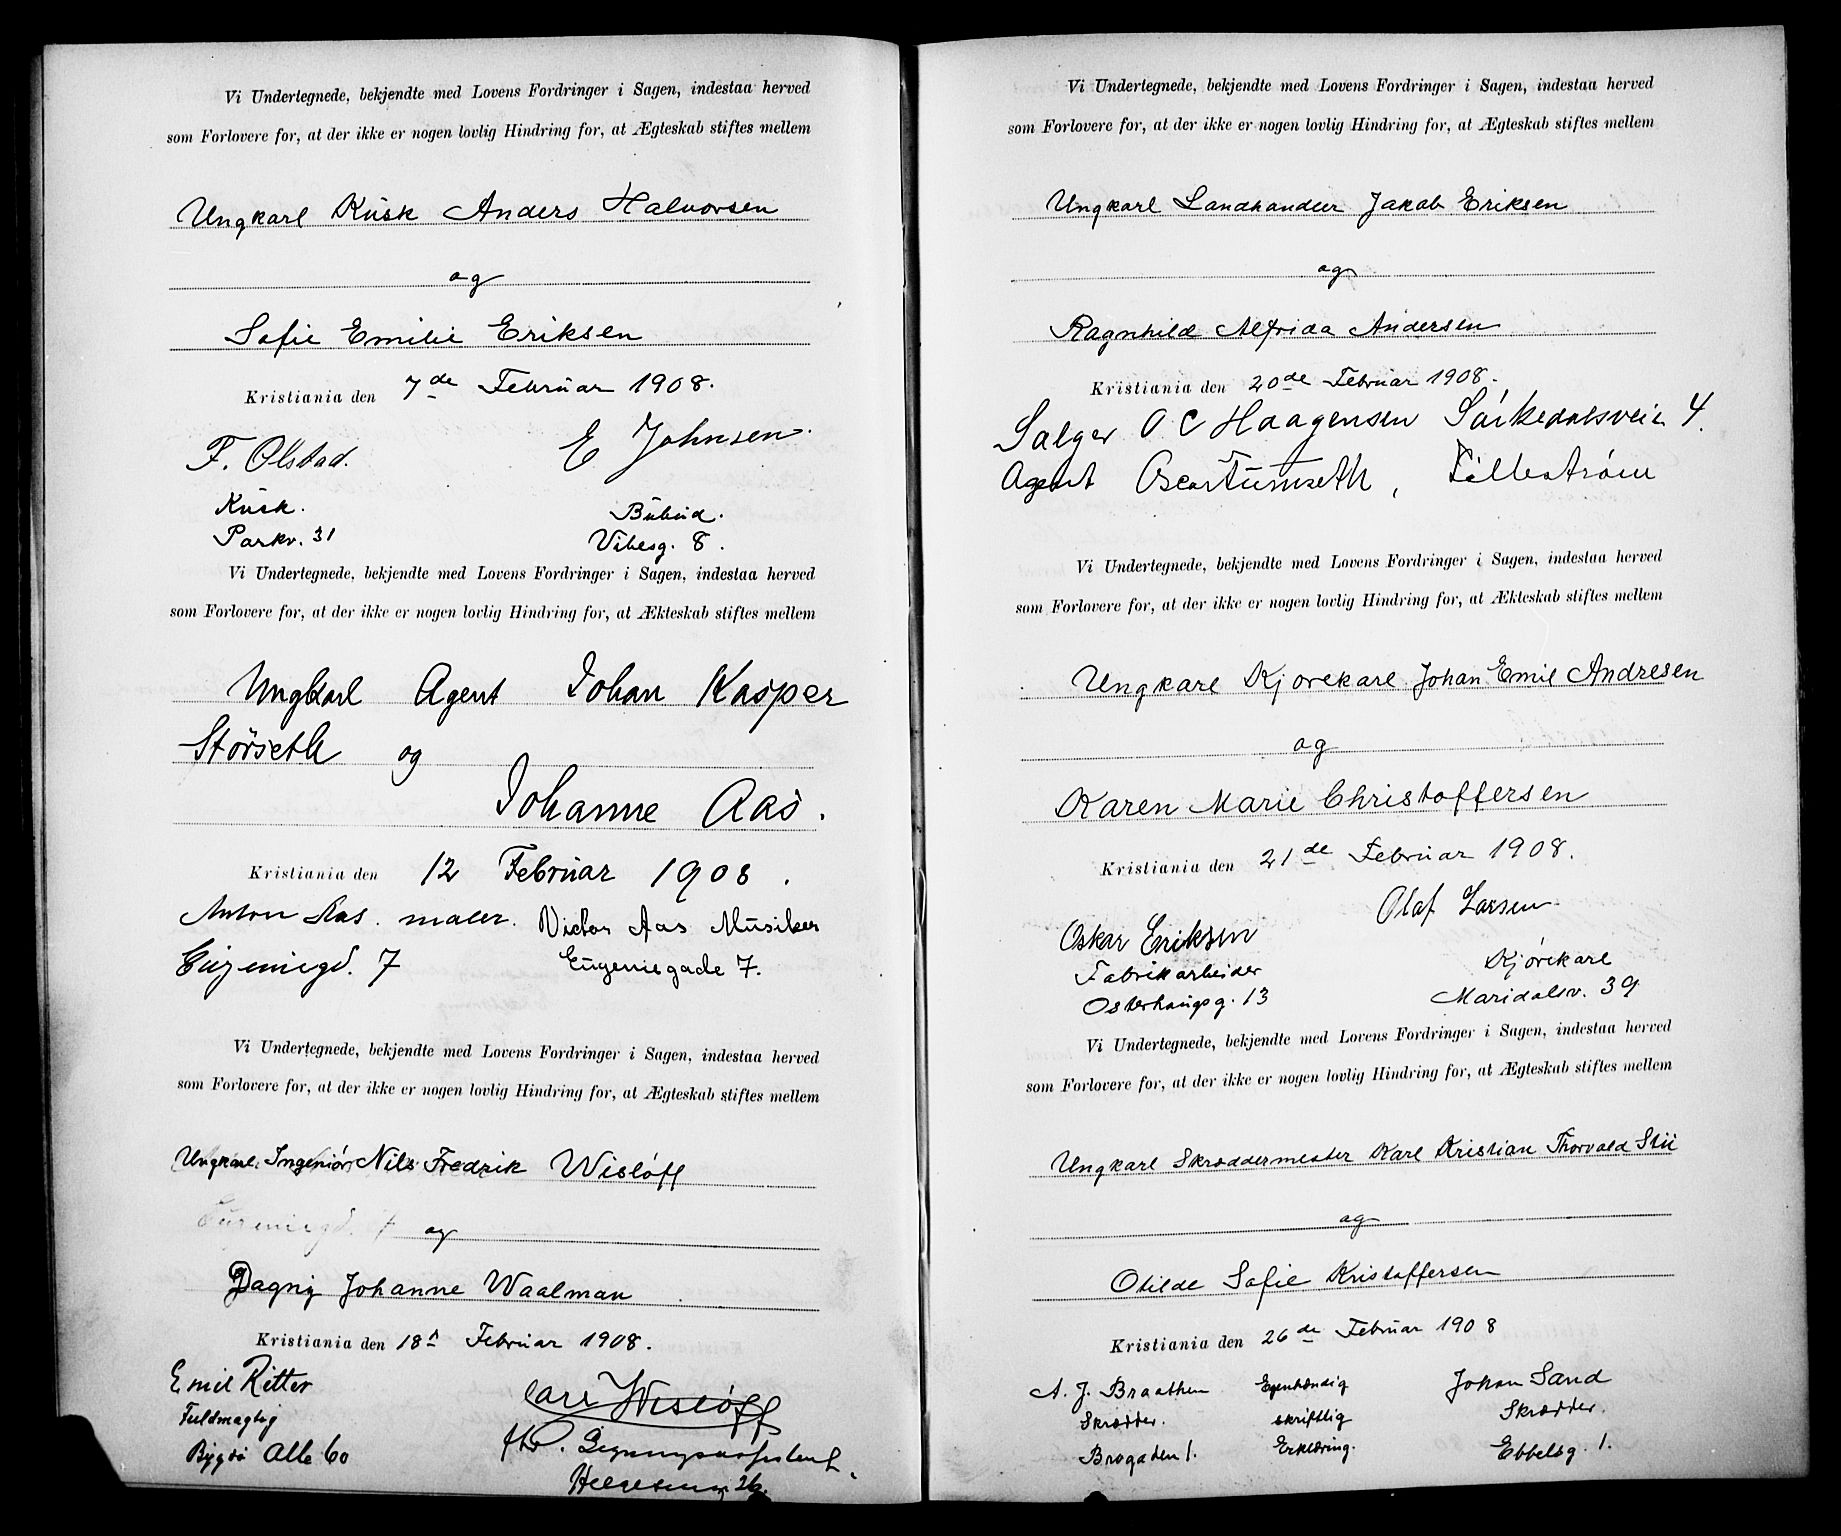 Vi Undertegnede, bekjendte med Lovens Fordringer i Sagen, indestaa herved
som Forlovere for, at der ikke er nogen lovlig Hindring for, at Ægteskab stiftes mellem
Ungkarl Kusk Anders Halvorsen
og
Sofie Emilie Eriksen
Kristiania den 7de Februar 1908.
F. Olstad. E Johnsen.
Kusk. Bübud.
Parkv. 31 Vibesg. 8.
Vi Undertegnede, bekjendte med Lovens Fordringer i Sagen, indestaa herved
som Forlovere for, at der ikke er nogen lovlig Hindring for, at Ækteskab stiftes mellem
Ungkarl Agent Johan Kasper
Störseth og
Johanne Aas.
Kristiania den 12 Februar 1908.
Anton Aas. maler. Victor Aas Musiker
Eugeniegd. 7 Eugeniegade 7.
Vi Undertegnede, bekjendte med Lovens Fordringer i Sagen, indestaa herved
som Forlovere for, at der ikke er nogen lovlig Hindring for, at Ægteskab stiftes mellem
Ungkarl Ingeniör Nils Fredrik Wisløff
og
Dagny Johanne Waalman
Kristiania den 18n Februar 1908.
Emil Ritter Carl Wisløff
Fuldmægtig
Bygdö Alle 60 26.
Vi Undertegnede, bekjendte med Lovens Fordringer i Sagen, indestaa herved
som Forlovere for, at der ikke er nogen lovlig Hindring for, at Ægteskab stiftes mellem
Ungkarl Landhandler Jakob Eriksen
og
Ragnhild Alfrida Andersen
Kristiania den 20de Februar 1908.
Sælger O C Haagensen Sörkedalsvein 4.
Agent Oscar Tumseth, Lillestrøm
Vi Undertegnede, bekjendte med Lovens Fordringer i Sagen, indestaa herved
som Forlovere for, at der ikke er nogen lovlig Hindring for, at Ækteskab stiftes mellem
Ungkarl Kjørekarl Johan Emil Andresen
og
Karen Marie Christoffersen
Kristiania den 21de Februar 1908.
Oskar Eriksen Olaf Larsen
Fabrikarbeider Kjørekarl
Osterhaugsg. 13 Maridalsv. 39
Vi Undertegnede, bekjendte med Lovens Fordringer i Sagen, indestaa herved
som Forlovere for, at der ikke er nogen lovlig Hindring for, at Ægteskab stiftes mellem
Ungkarl Skræddermester Karl Kristian Thorvald Stii
og
Otilde Sofie Kristoffersen
Kristiania den 26de Februar 1908
A. J. Braathen Egenhændig Johan Sand
Skrædder. skriftlig Skrædder.
Brogaden 1. Erklæring. Ebbelsg. 1.